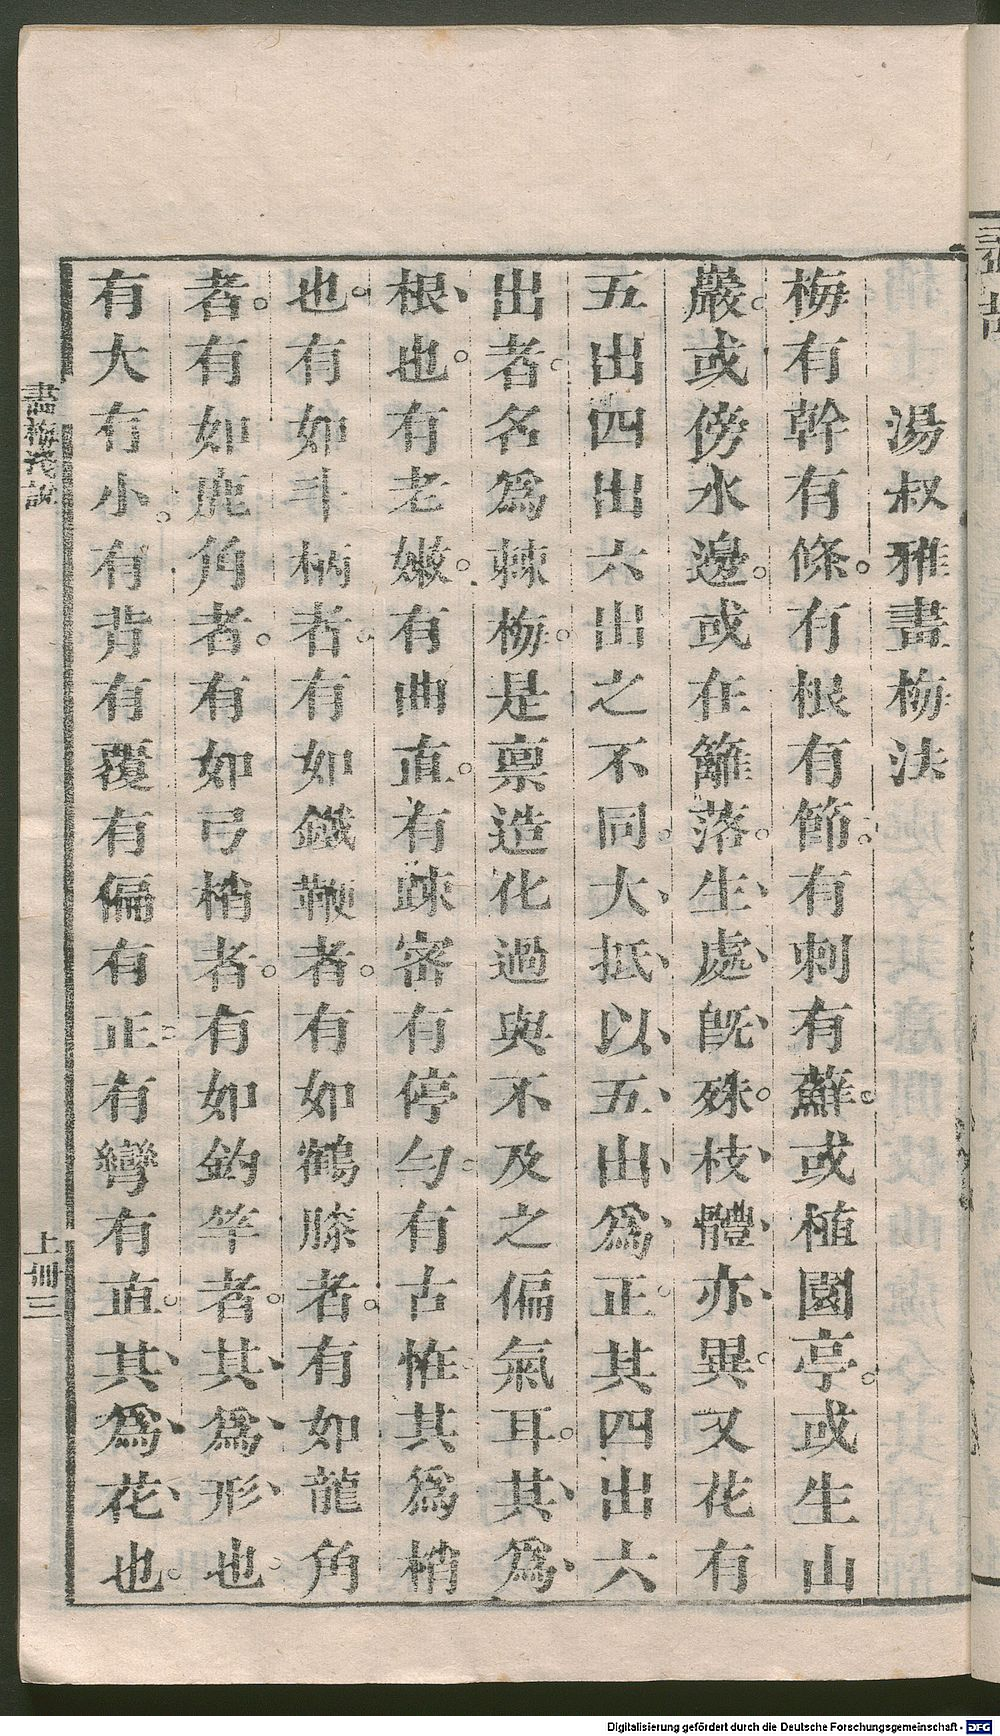 湯叔雅畫梅法
梅有幹有條。有根有節。有刺有蘚。或植園亭。或生山
巖。或傍水邊。或在籬落。生、處、旣、殊。枝、體、亦、異。又花有
五出四出六出之不同。大、抵、以、五、出、爲、正。其四出六
出者。名爲棘梅。是禀造化過與不及之偏氣耳。其、爲、
根、也。有老嫩。有曲直。有疎密有停勻。有古惟。其爲梢
也。有如斗柄者。有如鐵鞭者。有如鶴膝者。有如龍角
者。有如鹿角者。有如弓梢者。有如釣竿者。其、爲、形、也。
有大有小。有背有覆有偏有正。有彎有直。其、爲、花、也。
畫梅淺說
上冊三
Digitalisierung gefördert durch die Deutsche Forschungsgemeinschaft - DFG